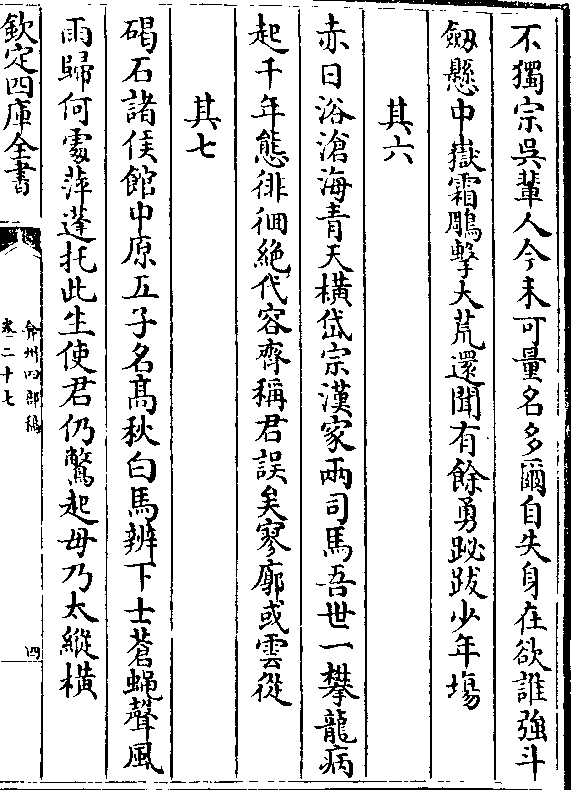 不獨宗吳輩人今未可量名多爾自失身在欲誰強斗
劒懸中嶽霜鵰擊大荒還聞有餘勇跐跋少年塲
其六
赤日浴滄海青天橫岱宗漢家兩司馬吾世一攀龍病
起千年態徘徊絶代容齊稱君誤矣寥廓或雲從
其七
碣石諸侯館中原五子名高秋白馬辨下士蒼蝿聲風
雨歸何處萍蓬托此生使君仍驚起毋乃太縱橫
欽定四庫全書
弇州四部稿
卷二十七
四